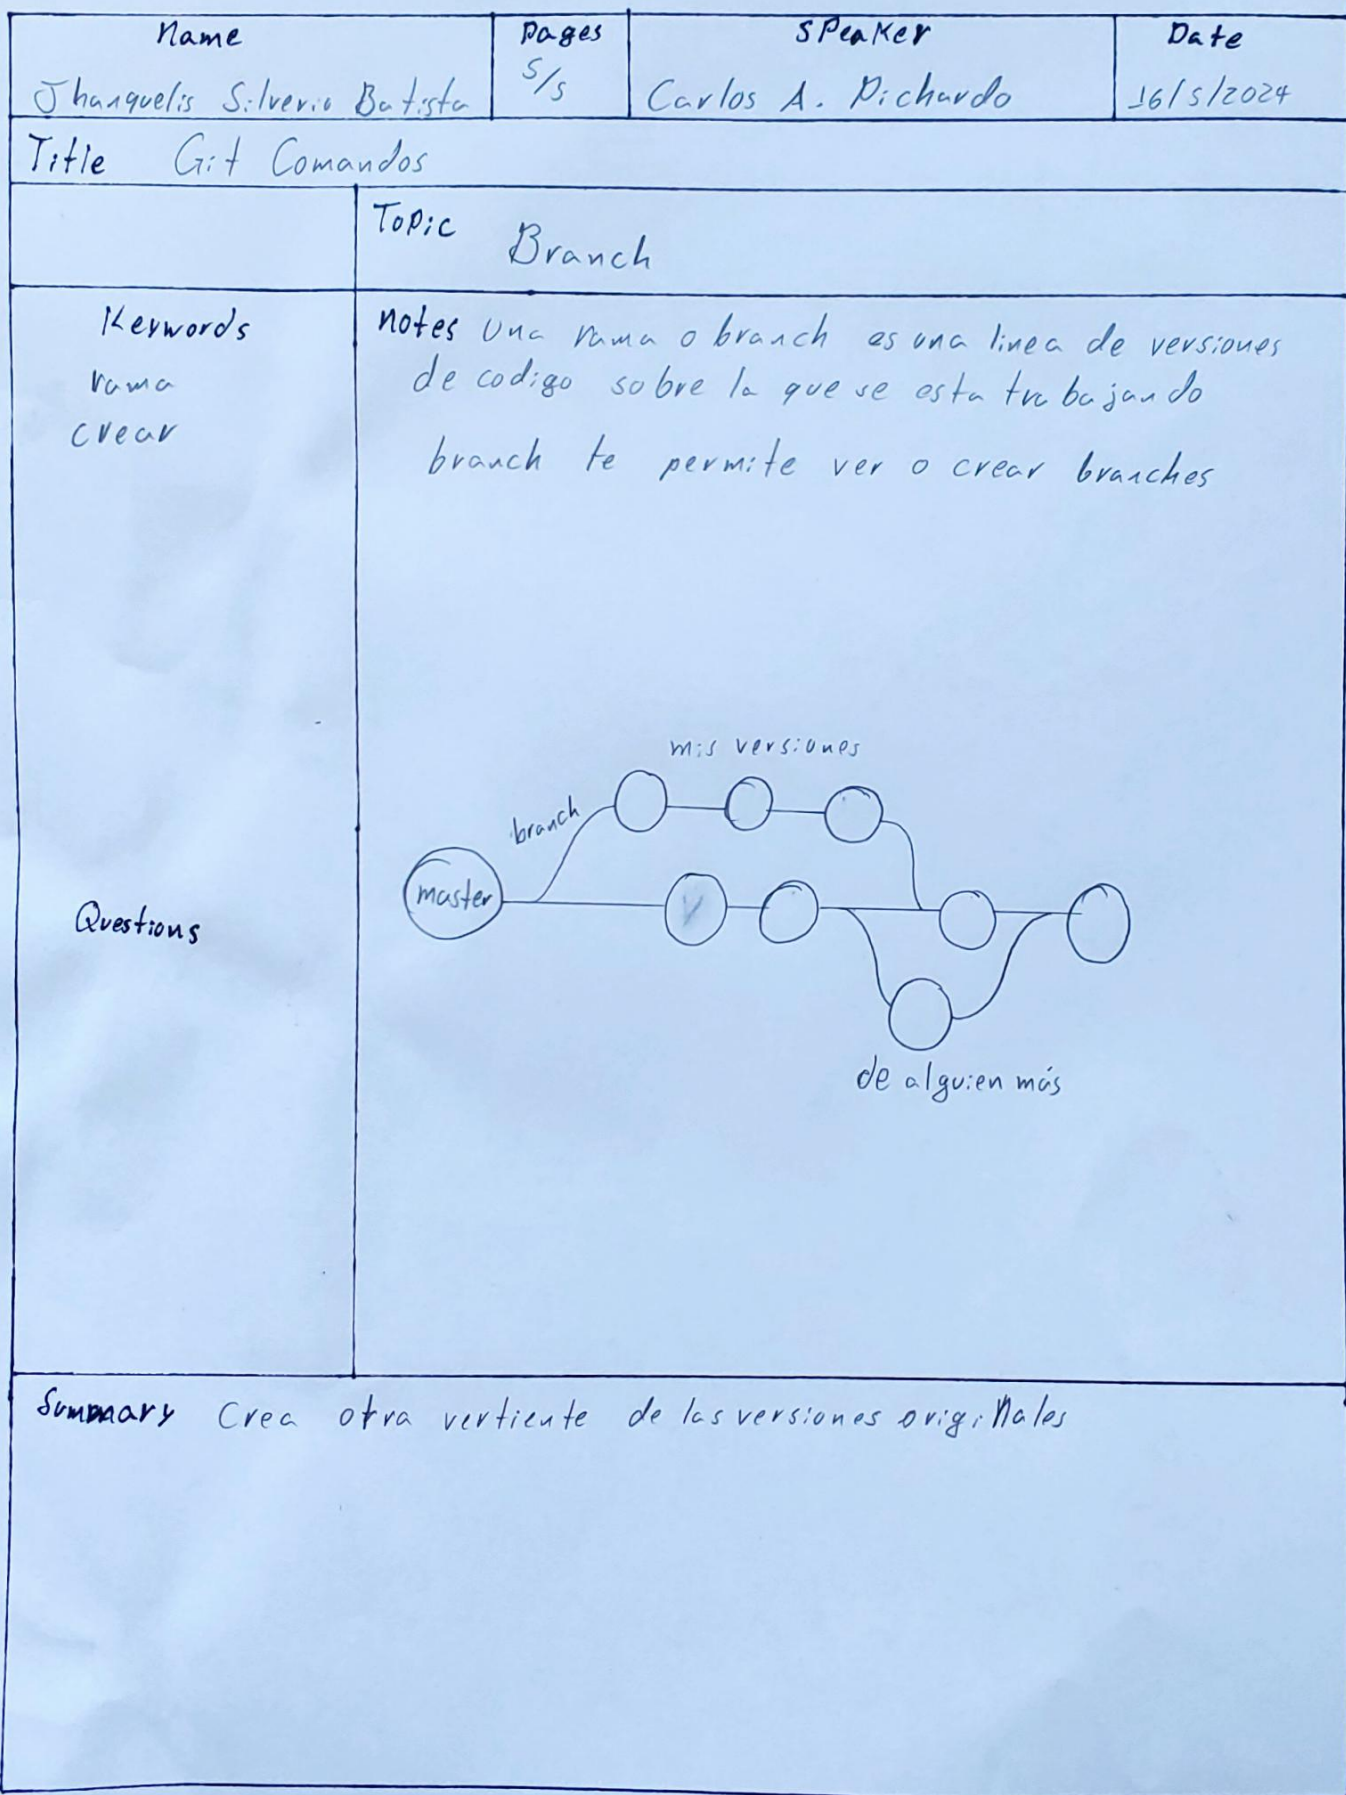 Name
Pages
Speaker
Date
Jhanquelis Silverio Batista
5/5
Carlos A. Pichardo
16/5/2024
Title Git Comandos
Topic Branch
Kerwords
rama
crear
Notes Una rama o branch es una linea de versiones
de codigo sobre la que se esta trabajando
branch te permite ver o crear branches
mis versiones
branch
master
de alguien más
Questions
Summary Crea otra vertiente de las versiones originales